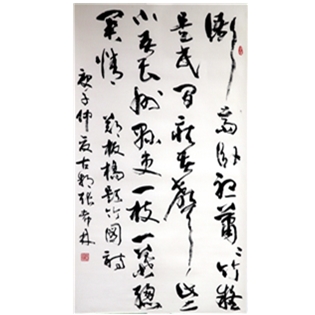 衙齋卧聽蕭〻竹疑
是民間疾苦聲些
小吾曹州縣吏一枝一葉總
關情
鄭板橋題竹圖詩
庚子仲夏古張林